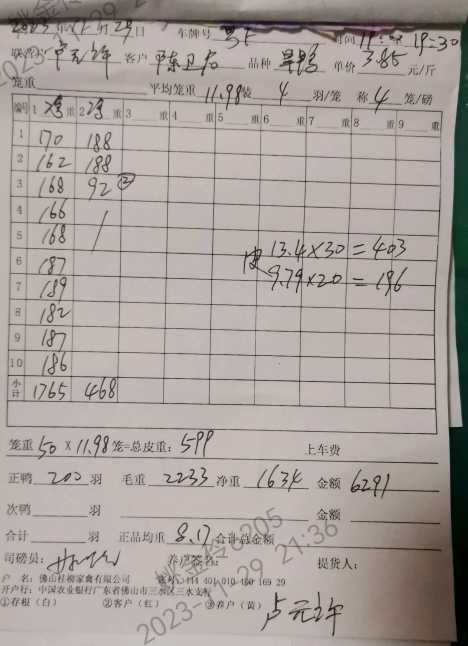 2023年11月29日 车牌号 时间 19:30
联营 卢元年 客户 陈卫右 品种 旱鸭 单价 3.85 元/斤
笼重 平均笼重 11.98 装 4 羽/笼 称 4 笼/磅
编号 1 重 2 重 3 重 4 重 5 重 6 重 7 重 8 重 9 重
1 170 188
2 162 188
3 168 92 ②
4 166 /
5 168
皮 13.4×30=403
6 187 9.79×20=196
7 189
8 182
9 187
10 186
小计 1765 468
笼重 50 X 11.98 笼=总皮重: 599 上车费
正鸭 200 羽 毛重 2233 净重 1634 金额 6291
次鸭 羽 金额
合计 羽 正品均重 8.17 合计总金额
司磅员: 养户签名: 提货人:
户 名: 佛山桂柳家禽有限公司 账号: 44 401 010 400 169 29
开户行: 中国农业银行广东省佛山市三水区三水支行
①存根(白) ②客户(红) ③养户(黄) 卢元年
2023-11-29 21:36